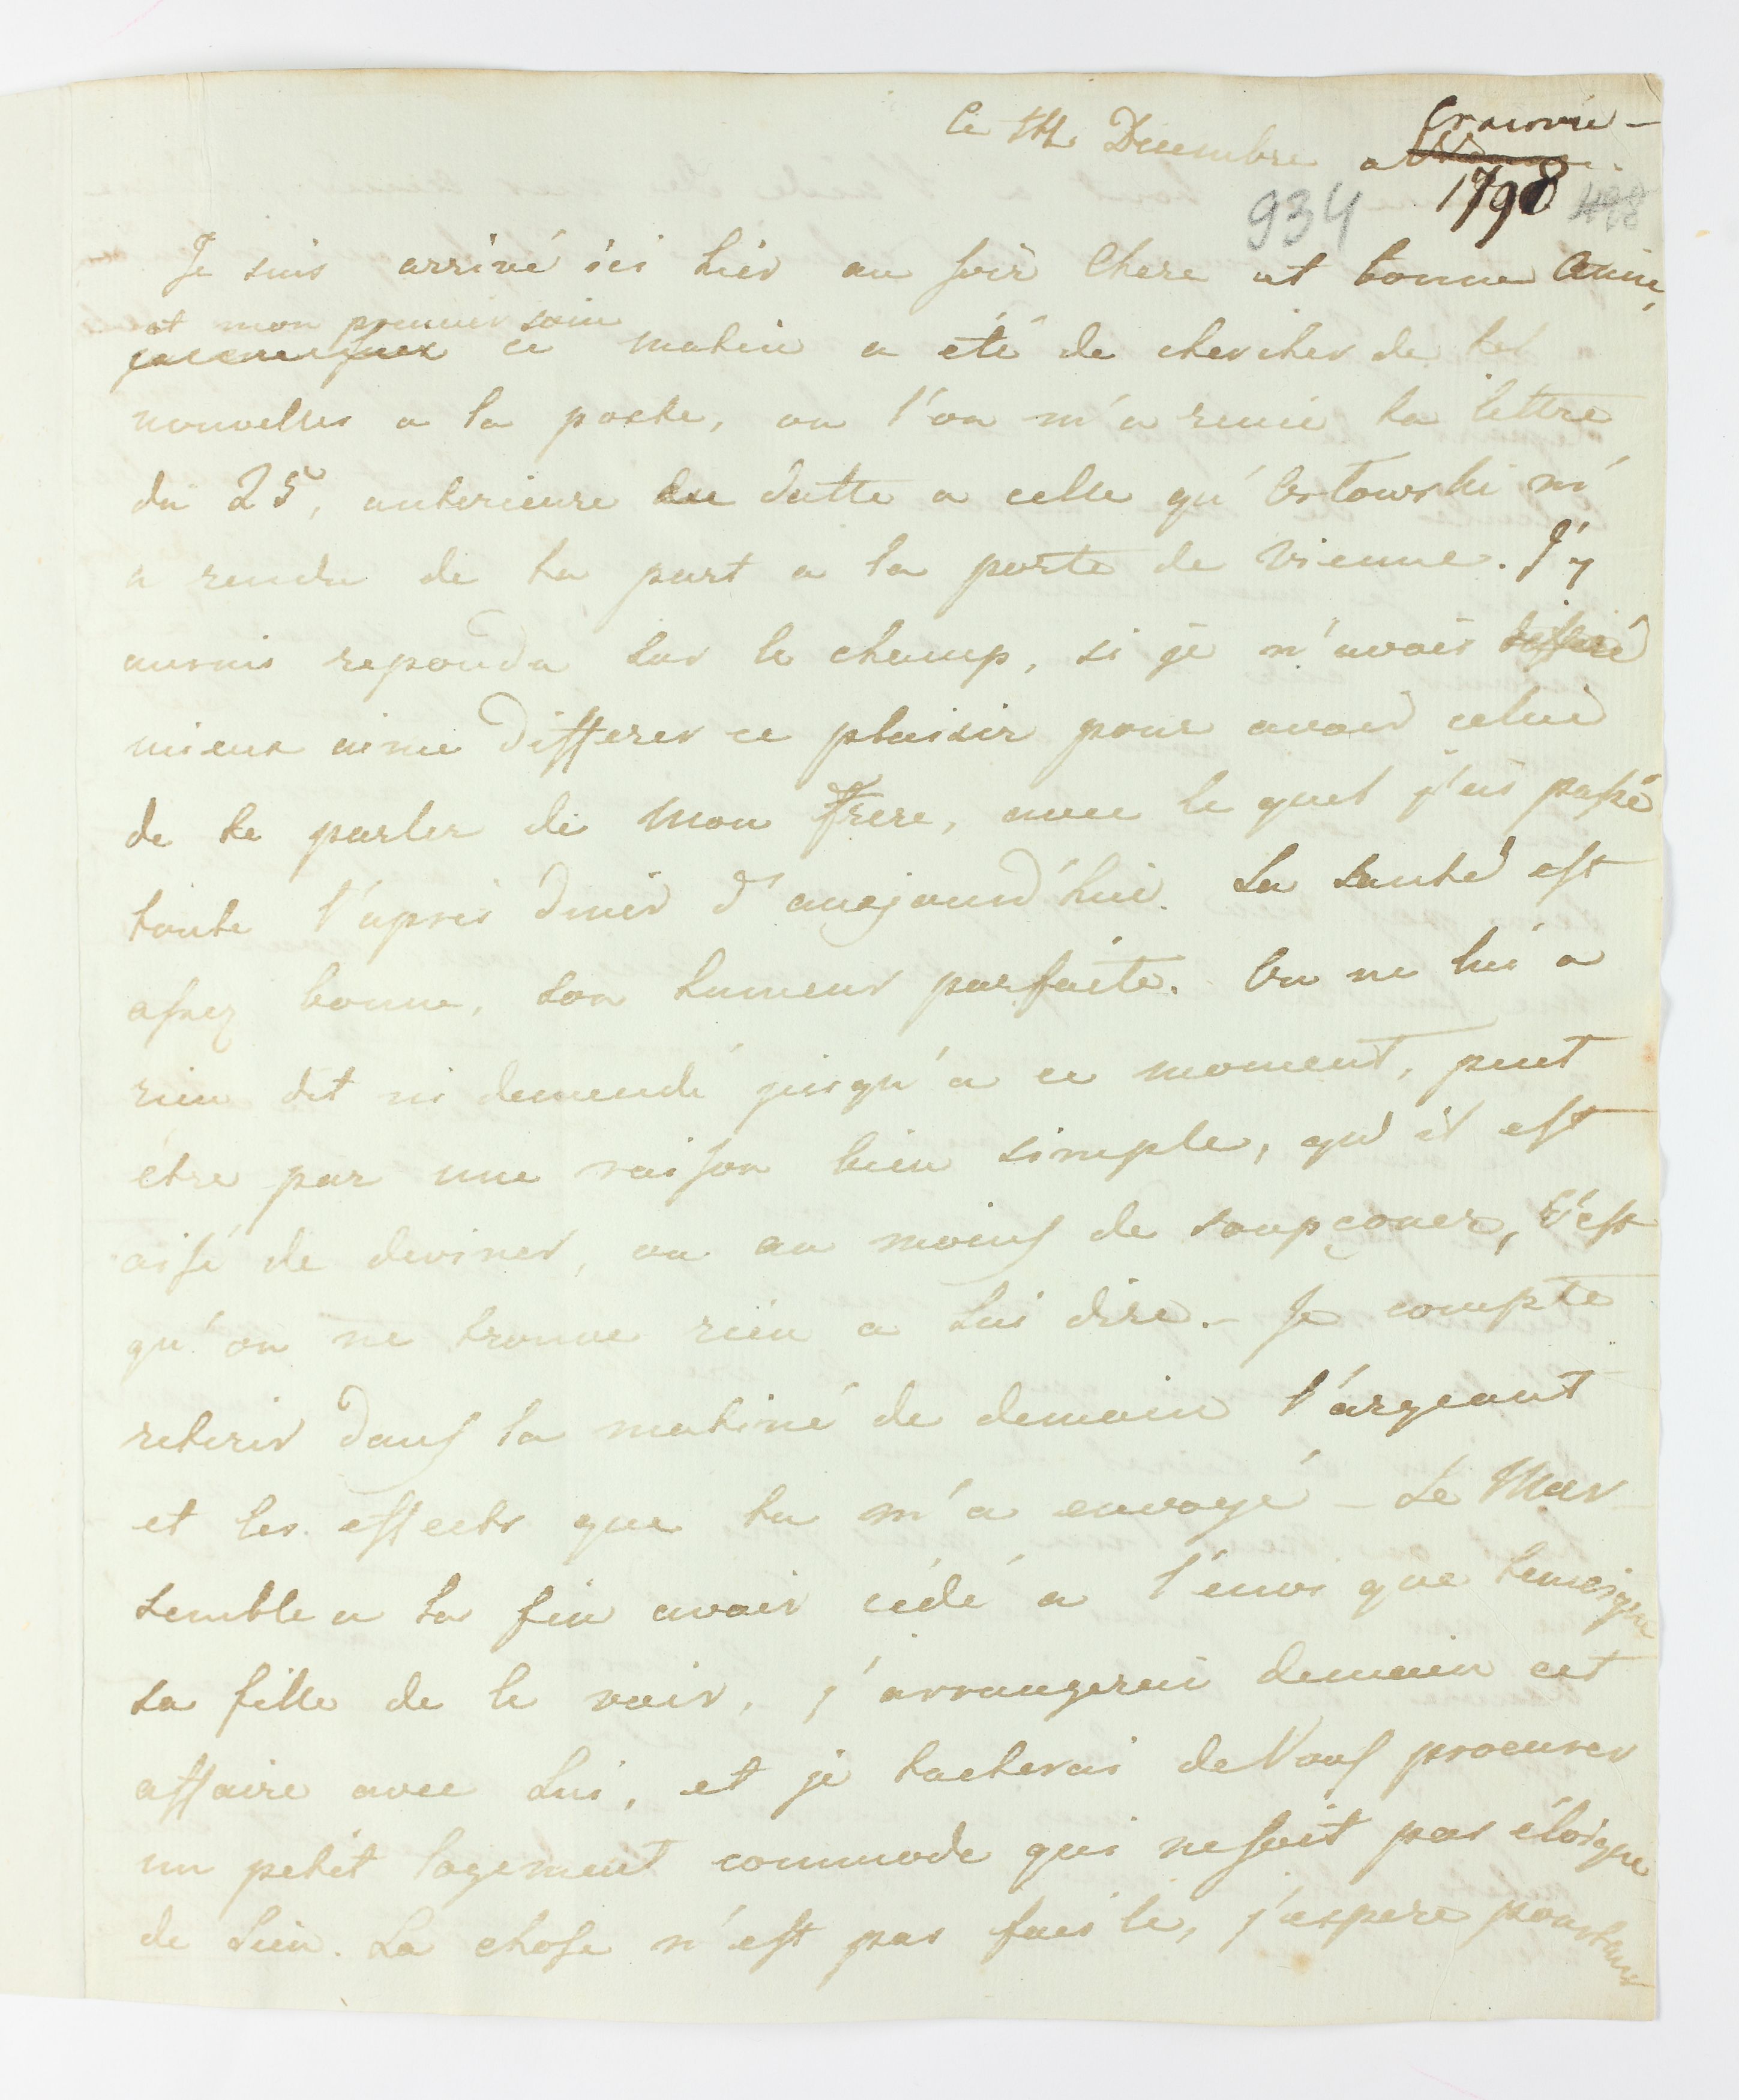 Ce Decembre a Cracovie -
1798
934
Je suis arrivé ici hier au soir Chere et bonne Amie,
et mon premier soin
ce matin a été de chercher de tes
nouvelles a la poste, ou l'on m'a remi ta lettre
du 25, anterieure du datte a celle qu' m'
a rendu de ta part a la porte de Vienne. J'y
aurais repondu sur le champ, si je n'avais differé
mieux aimé differer ce plaisir pour avoir celui
de te parler de mon Frere, avec le quel j'ai passé
toute l'apres diner d'aujourd'hui. Sa santé est
assez bonne, son humeur parfaite. On ne lui a
rien dit ni demandé jusqu'a ce moment, peut
etre par une raison bien simple, qu'il est
aisé de deviner, ou au moins de soupçoner, c'est
qu'on ne trouve rien a lui dire. - Je compte
retirer dans la matiné de demain l'argeant
et les effects que tu m'a envoyé - Le Mar
semble a la fin avoir cédé a l'envi que temoigne
sa fille de le voir, j'arrangerai demain cet
affaire avec lui, et je tacherai de Vous procurer
un petit logement commode qui ne soit pas éloigne
de sien. La chose n'est pas facile, j'espere pourtant